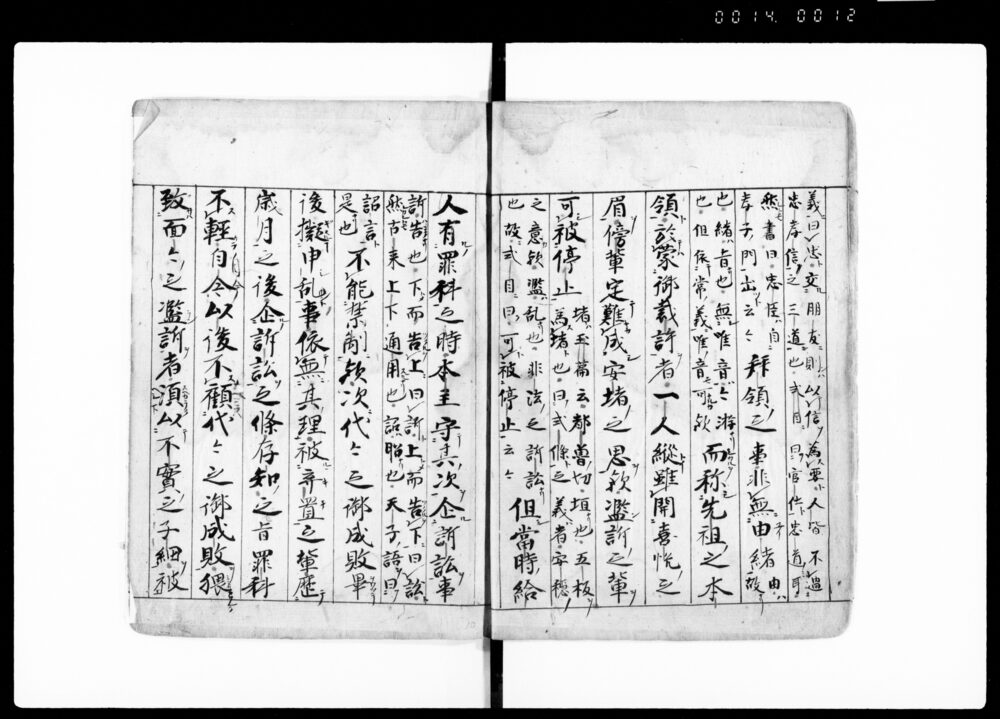 0014. 0012
義曰忠交朋友則以信為要人皆不過
忠孝信之三道也式目曰官仕忠道可
然書曰忠臣自
孝子門出云々
拜領之事非無由緒
由
故
也緒旨也無唯音々游
也但依常義唯音可欤
而称先祖之本
領於蒙御裁許者一人縦雖開喜悦之
眉傍輩定難成安堵之思欤濫訴之輩
可被停止
堵玉篇云都魯切垣也五板
為堵也式條之義者安穏
之意欤濫乱也非法之訴訟
也故式目曰可被停止云々
但當時給
人有罪科之時本主守其次企訴訟事
訴告也下而告上曰訴上而告下曰訟
然古来上下通用也詔照也天子語曰
詔言
是也
不能禁制欤次代々之御成敗畢
後擬申乱事依無其理被弃置之輩歴
歳月之後企訴訟之條存知之旨罪科
不軽自今以後不顧代々之御成敗猥
致面々之濫訴者須以不實之子細被